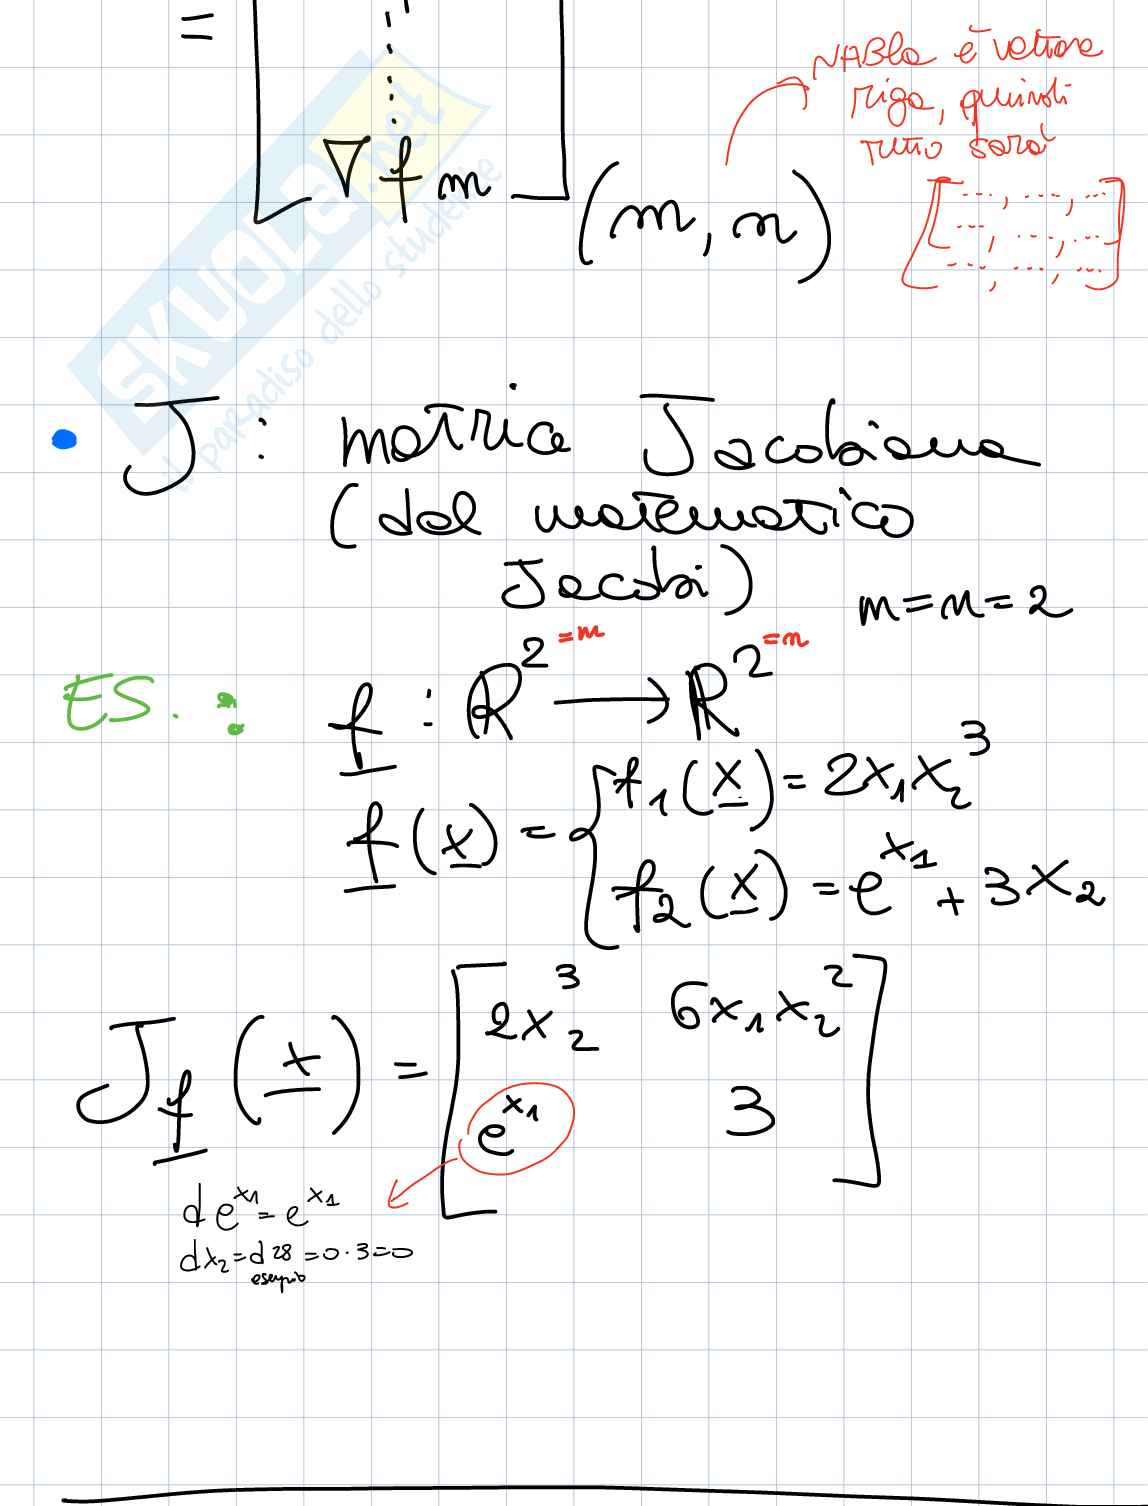 =
⋮
∇fm
(m, n)
NABLA è vettore
riga, quindi
tutto sarà
[..., ..., ...
..., ..., ...
..., ..., ...]
SKUOLA.net
il paradiso dello studente
• J : matrice Jacobiana
(dal matematico
Jacobi)
m=n=2
ES. : f : R² =m → R² =n
f(x) = { f₁(x) = 2x₁x₂³
f₂(x) = e^x₁ + 3x₂
J_f(x) = [ 2x₂³ 6x₁x₂²
e^x₁ 3 ]
d e^x₁ = e^x₁
dx₂ = d 28 = 0·3=0
esempio